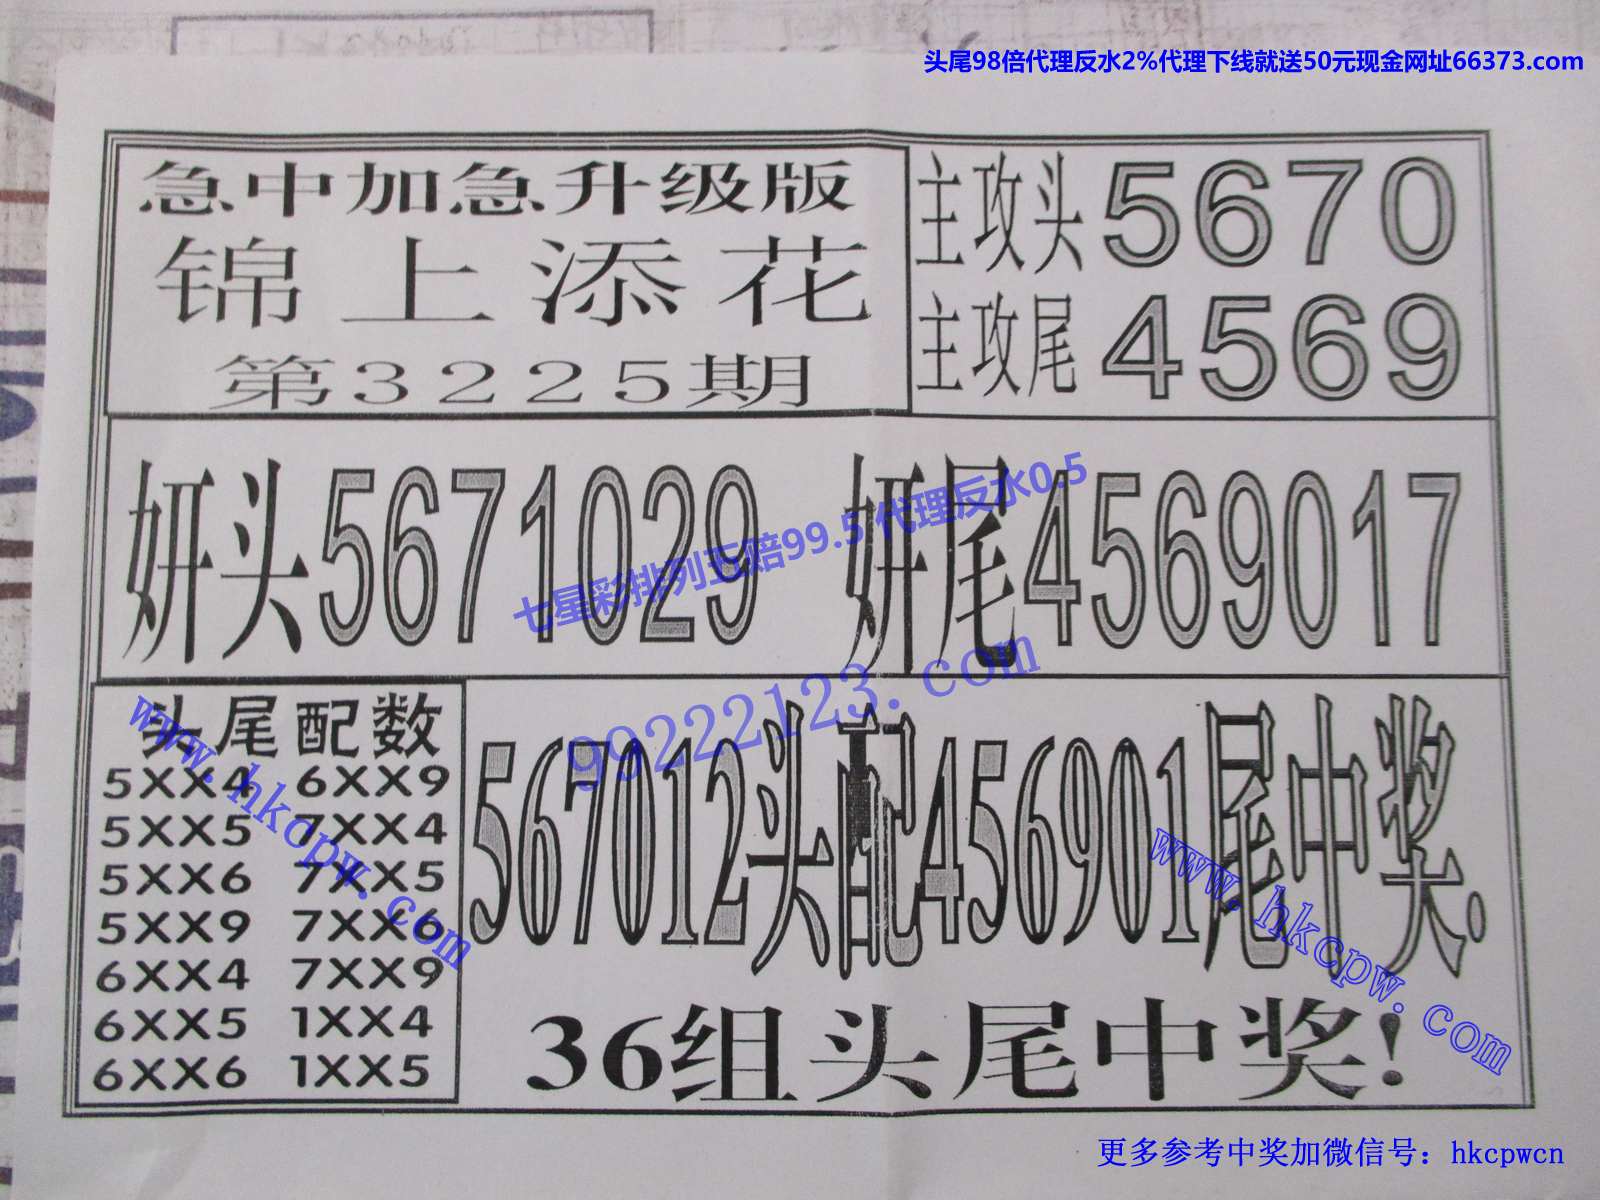 头尾98倍代理反水2%代理下线就送50元现金网址66373.com
急中加急升级版
锦上添花
第3225期
主攻头5670
主攻尾4569
妍头5671029 妍尾4569017
七星彩排列五赔99.5 代理反水0.5
99222123.com
头尾配数
5XX4 6XX9
5XX5 7XX4
5XX6 7XX5
5XX9 7XX6
6XX4 7XX9
6XX5 1XX4
6XX6 1XX5
www.hkcpw.com
567012头配456901尾中奖.
www.hkcpw.com
36组头尾中奖!
更多参考中奖加微信号：hkcpwcn